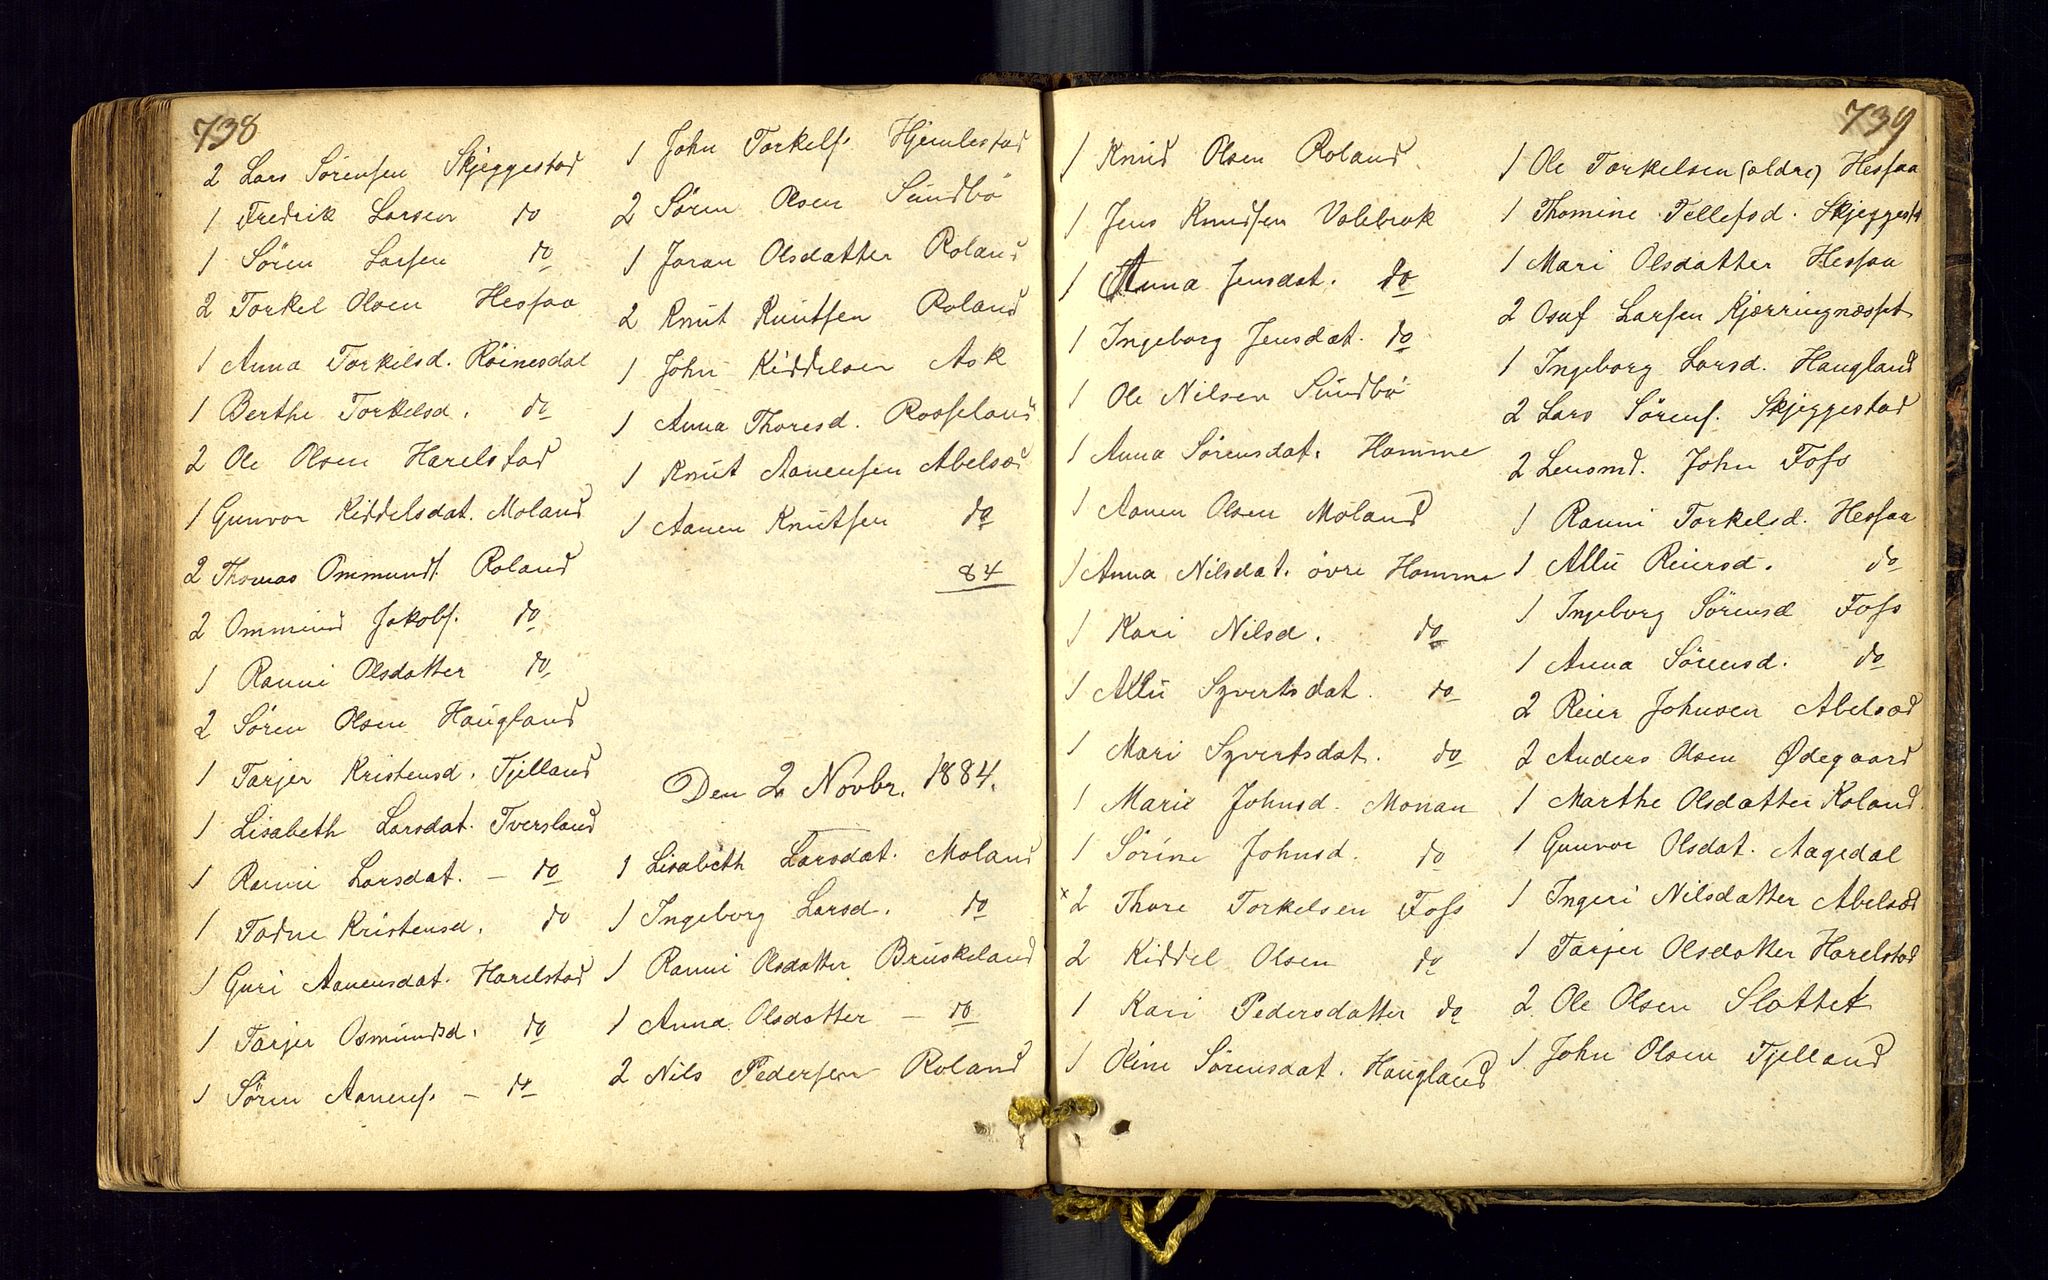 738
2 Lars Sörensen Skjeggestad
1 Fredrik Larsen do
1 Sören Larsen do
2 Torkel Olsen Hesfaa
1 Anna Torkilsd. Röinesdal
1 Berthe Torkelsd. do
2 Ole Olsen Harelstad
1 Gunvor Kiddelsdat. Moland
2 Thomas Ommunds. Roland
2 Ommund Jakobs. do
1 Ranni Olsdatter do
2 Sören Olsen Haugland
1 Tarjer Kristensd. Fjelland
1 Lisabeth Larsdat. Tversland
1 Ranni Larsdat. — do
1 Todne Kristensd. do
1 Guri Aanensdat. Harelstad
1 Tarjer Osmundsd. do
1 Sören Aanens. — do
1 John Torkels. Hjemlestad
2 Sören Olsen Sundbö
1 Joran Olsdatter Roland
2 Knut Knutsen Roland
1 John Kiddelsen Ask
1 Anna Thoresd. Rosseland
1 Knut Aanensen Abelsæd
1 Aanen Knutsen do
84
Den 2 Novbr. 1884.
1 Lisabeth Larsdat. Moland
1 Ingeborg Larsd. do
1 Ranni Olsdatter Bruskeland
1 Anna Olsdatter — do
2 Nils Pedersen Roland
739
1 Knud Olsen Roland
1 Jens Knudsen Valebrok
1 Anna Jensdat. do
1 Ingeborg Jensdat. do
1 Ole Nilsen Sundbö
1 Anna Sörensdat. Homme
1 Aanen Olsen Moland
1 Anna Nilsdat. övre Homme
1 Kari Nilsd. do
1 Allu Syvertsdat. do
1 Mari Syvertsdat. do
1 Marie Johnsd. Monan
1 Sörine Johnsd. do
x 2 Thore Torkelsen Foss
2 Kiddel Olsen do
1 Kari Pedersdatter do
1 Oline Sörensdat. Haugland
1 Ole Torkelsen (ældre) Hesfaa
1 Thomine Tellefsd. Skjeggestd
1 Mari Olsdatter Hesfaa
2 Osuf Larsen Kjærringnæsset
1 Ingeborg Larsd. Haugland
2 Lars Sörens. Skjeggestad
2 Lensmd. John Foss
1 Ranni Torkelsd. Hesfaa
1 Allu Reiersd. do
1 Ingeborg Sörensd Foss
1 Anna Sörensd. do
2 Reier Johnsen Abelsæd
2 Anders Olsen Ødegaard
1 Marthe Olsdatter Roland
1 Gunvor Olsdat. Aagedal
1 Ingeri Nilsdatter Abelsæd
1 Tarjer Olsdatter Harelstad
2 Ole Olsen Slottet
1 John Olsen Fjelland